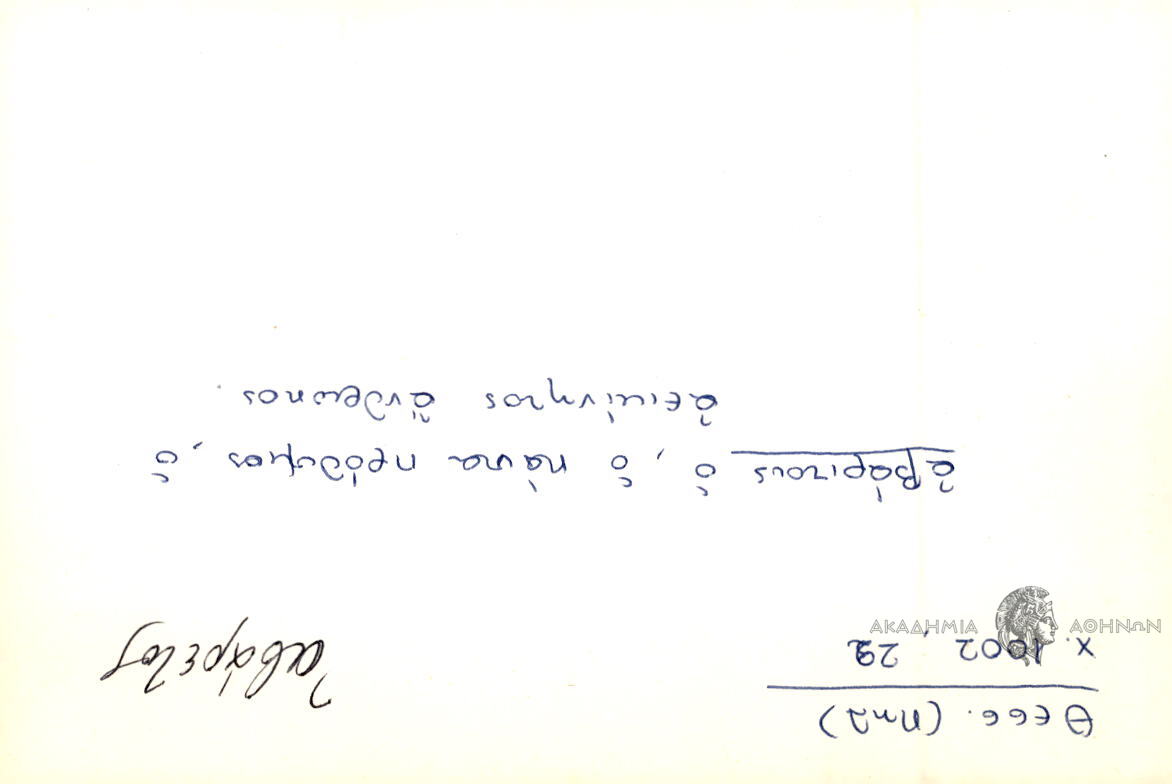 Θεσσ. (Πηλ)
χ. 1002, 29
ἀβάρετος
ἀβάριτους ὁ, ὁ πάντα πρόθυμος, ὁ
ἀεικίνητος ἄνθρωπος.
ΑΚΑΔΗΜΙΑ ΑΘΗΝΩΝ